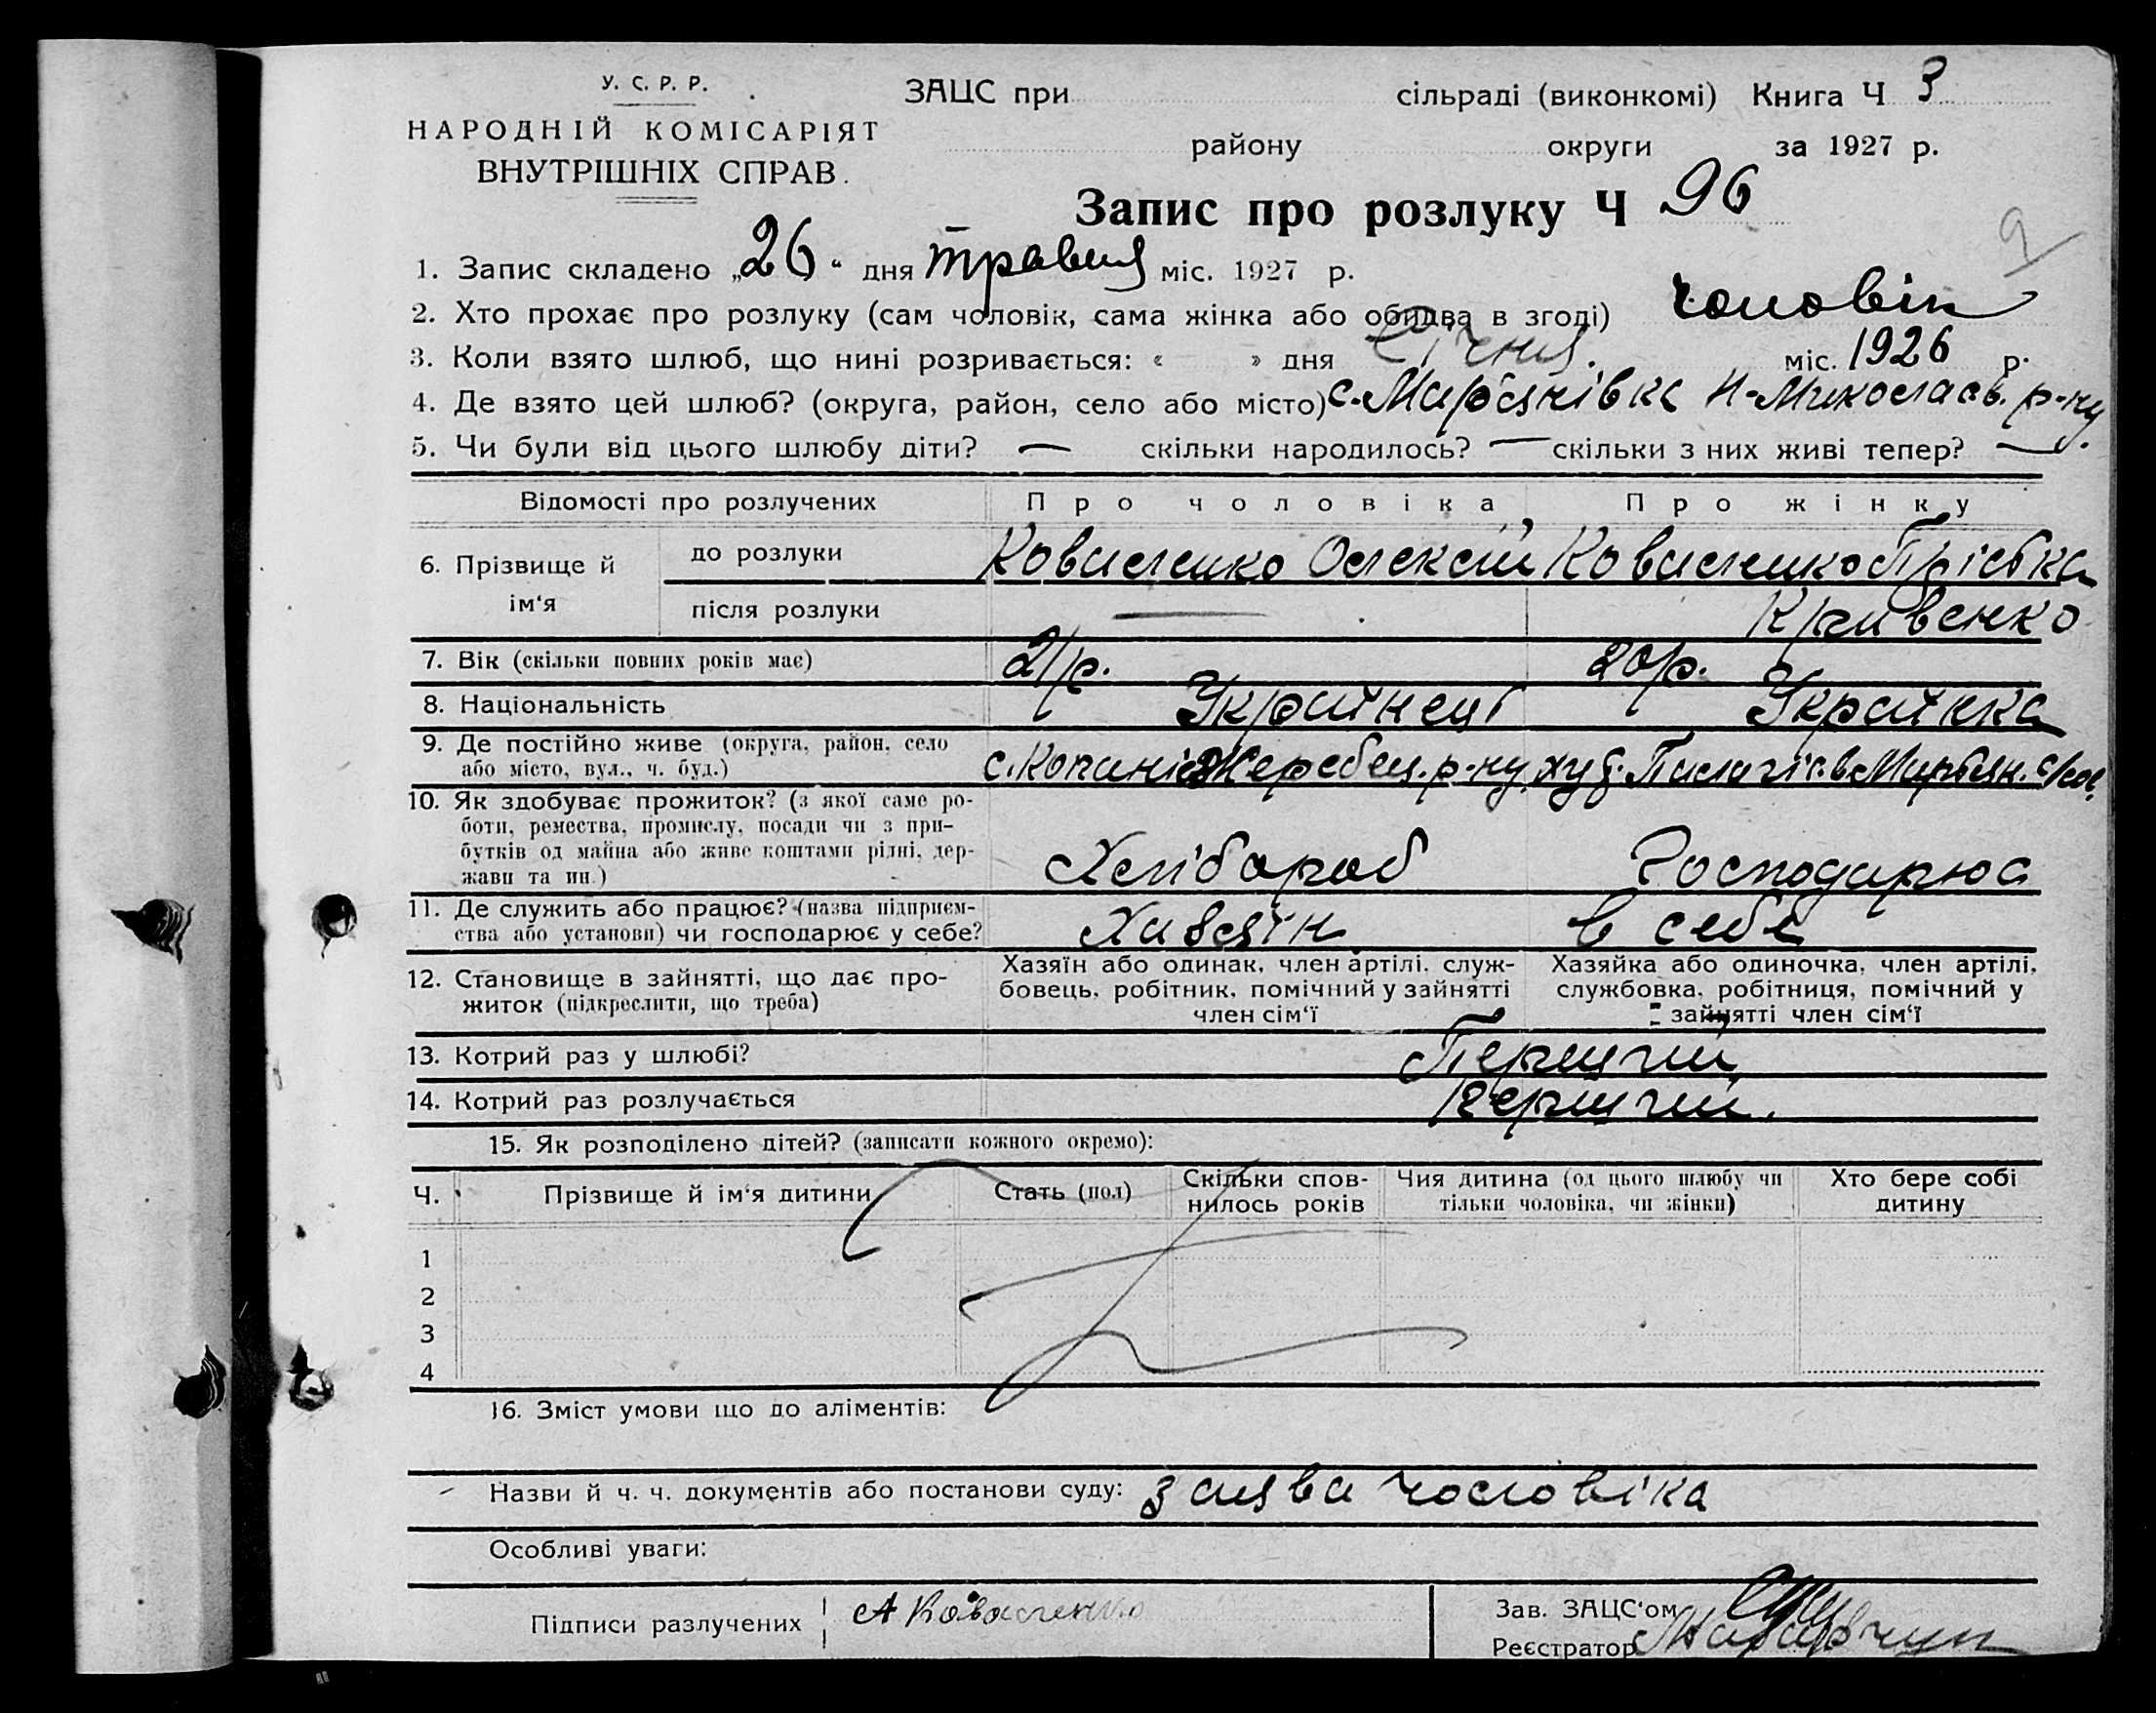 У. С. Р. Р.
НАРОДНІЙ КОМІСАРІЯТ
ВНУТРІШНІХ СПРАВ.
ЗАЦС при сільраді (виконкомі) Книга Ч 3
району округи за 1927 р.
Запис про розлуку Ч 96
9
1. Запис складено „26“ дня травня міс. 1927 р.
2. Хто прохає про розлуку (сам чоловік, сама жінка або обидва в згоді) чоловік
3. Коли взято шлюб, що нині розривається: « » дня Січня. міс. 1926 р.
4. Де взято цей шлюб? (округа, район, село або місто) с. Мар'янівка Н-Миколаєв. р-ну.
5. Чи були від цього шлюбу діти? — скільки народилось? — скільки з них живі тепер? —
Відомості про розлучених Про чоловіка Про жінку
6. Прізвище й ім‘я
до розлуки Коваленко Олексій Коваленко Прістка
після розлуки — Кривенко
7. Вік (скільки повних років має) 21р. 20р.
8. Національність Українец Українка
9. Де постійно живе (округа, район, село
або місто, вул., ч. буд.) с. Копані Жеребец. р-ну. худ.
10. Як здобуває прожиток? (з якої саме ро-
боти, ремества, промислу, посади чи з при-
бутків од майна або живе коштами рідні, дер-
жави та ин.) Хлібороб Господарює
11. Де служить або працює? (назва підприєм-
ства або установи) чи господарює у себе? Хазяїн в себе
12. Становище в зайнятті, що дає про-
житок (підкреслити, що треба)
Хазяїн або одинак, член артілі, служ-
бовець, робітник, помічний у зайнятті
член сім‘ї
Хазяйка або одиночка, член артілі,
службовка, робітниця, помічний у
зайнятті член сім‘ї
13. Котрий раз у шлюбі? Перший
14. Котрий раз розлучається перший.
15. Як розподілено дітей? (записати кожного окремо):
Ч. Прізвище й ім‘я дитини Стать (пол) Скільки спов-
нилось років Чия дитина (од цього шлюбу чи
тільки чоловіка, чи жінки) Хто бере собі
дитину
1
2
3
4
16. Зміст умови що до аліментів:
Назви й ч. ч. документів або постанови суду: заява чоловіка
Особливі уваги:
Підписи разлучених А Коваленко
Зав. ЗАЦС‘ом
Реєстратор